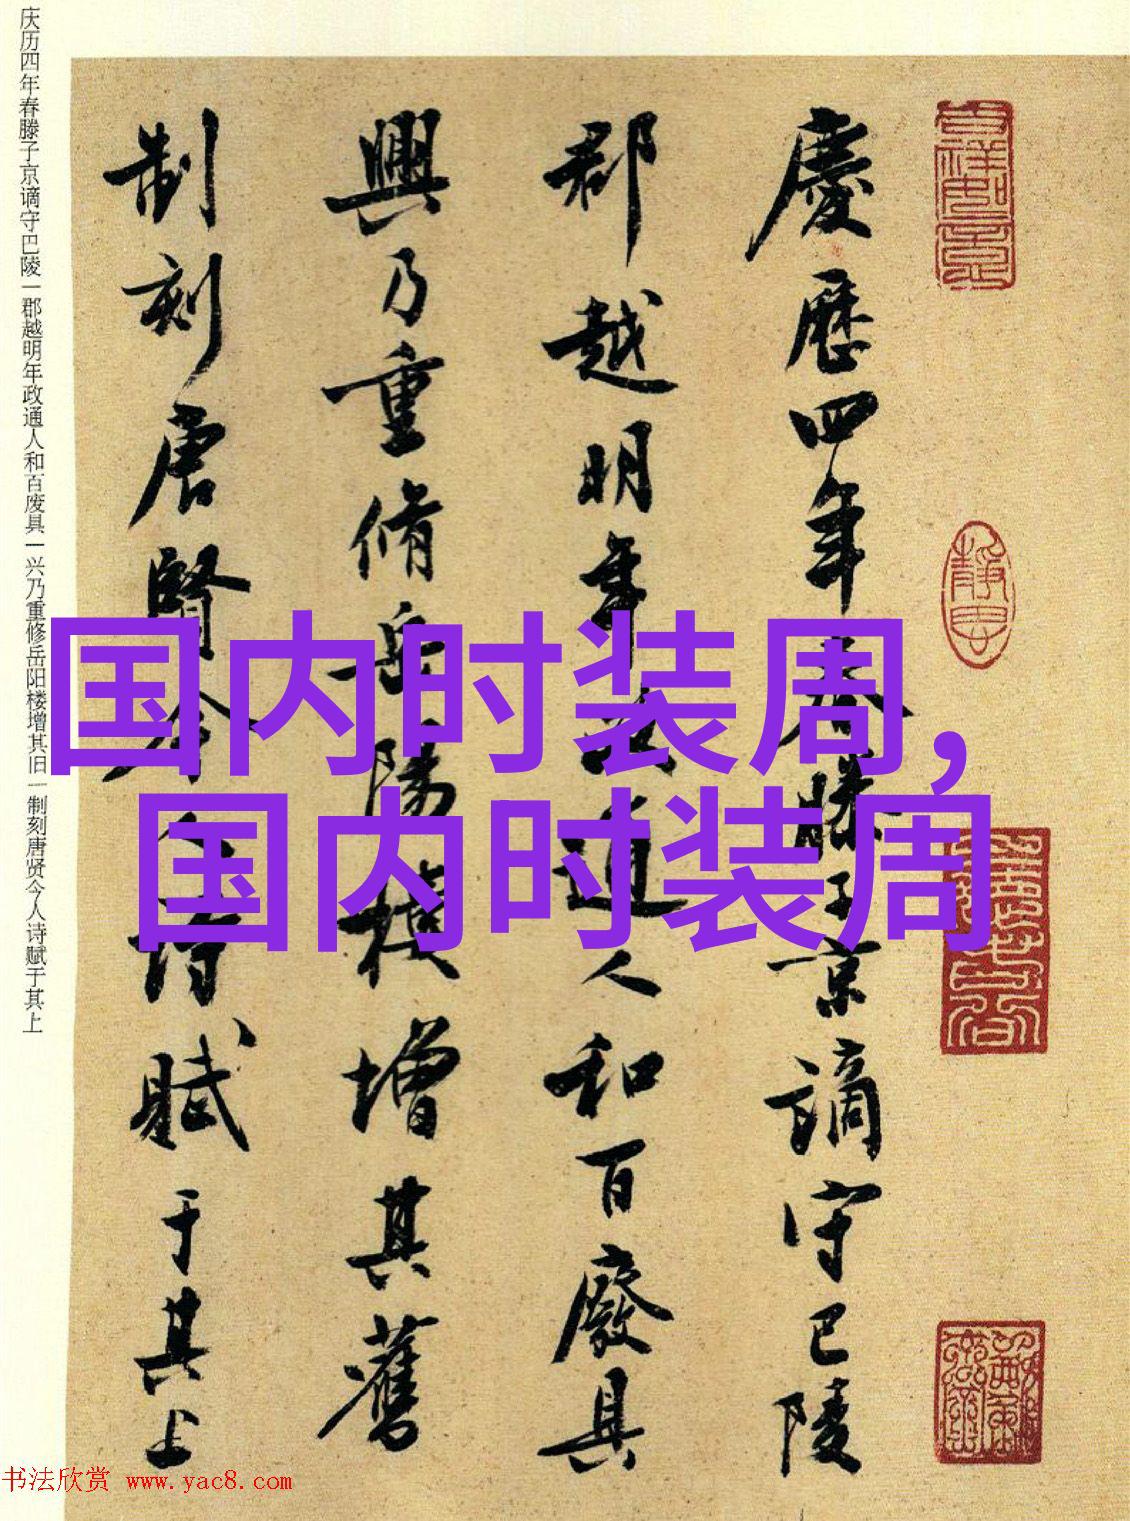 庆历四年春滕子京谪守巴陵一郡越明年政通人和百废具一兴乃重修岳阳楼增其旧一制刻唐贤今人诗赋于其上
慶歷四年春滕子京謫守巴陵
郡越明年政通人和百廢具
興乃重脩岳陽樓增其舊
制刻唐賢今人詩賦于其上
国内时装周，
国内时装周
书法欣赏 www.yac8.com